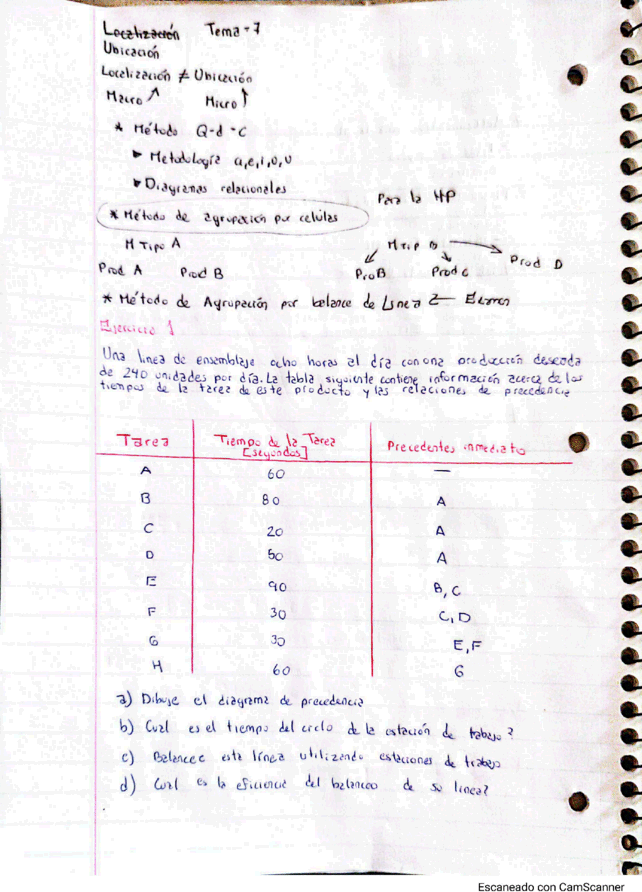 Localización Tema - 7
Ubicación
Localización ≠ Ubicación
Macro Micro
* Método Q-d-C
▸ Metodología a,e,i,o,u
▸ Diagramas relacionales
Para la HP
* Método de agrupación por celulas
M Tipo A
M Tip B
Prod A Prod B ProB Prod C Prod D
* Método de Agrupación por balance de Linea
Ejercicio 1
Una linea de ensamblaje ocho horas al día con una producción deseada
de 240 unidades por día. La tabla siguiente contiene información acerca de los
tiempos de la tarea de este producto y las relaciones de precedencia
Tarea Tiempo de la Tarea [segundos] Precedentes inmediato
A 60 —
B 80 A
C 20 A
D 50 A
E 90 B, C
F 30 C, D
G 30 E, F
H 60 G
a) Dibuje el diagrama de precedencia
b) Cual es el tiempo del ciclo de la estación de trabajo?
c) Balancee esta línea utilizando estaciones de trabajo
d) Cual es la eficiencia del balanceo de su linea?
Escaneado con CamScanner